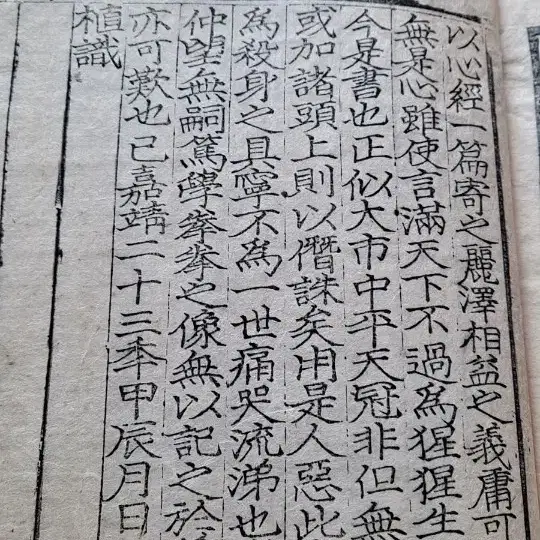 以心經一篇寄之麗澤相益之義庸可
無是心雖使言滿天下不過爲猩猩生
今是書也正似大市中平天冠非但無
或加諸頭上則以僭誅矣用是人惡此
爲殺身之具寧不爲一世痛哭流涕也
仲望無嗣篤學拳拳之像無以記之於
亦可歎也已嘉靖二十三年甲辰月日
植識